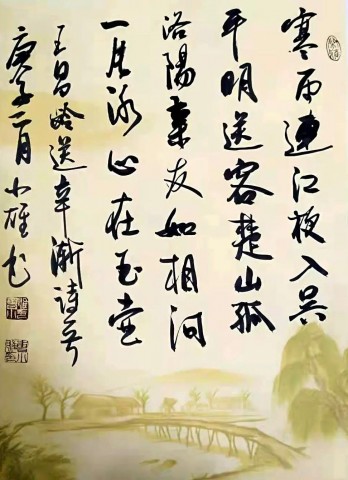 寒雨連江夜入吴
平明送客楚山孤
洛陽亲友如相问
一片冰心在玉壶
王昌龄送辛漸詩
庚子二月 小雄书